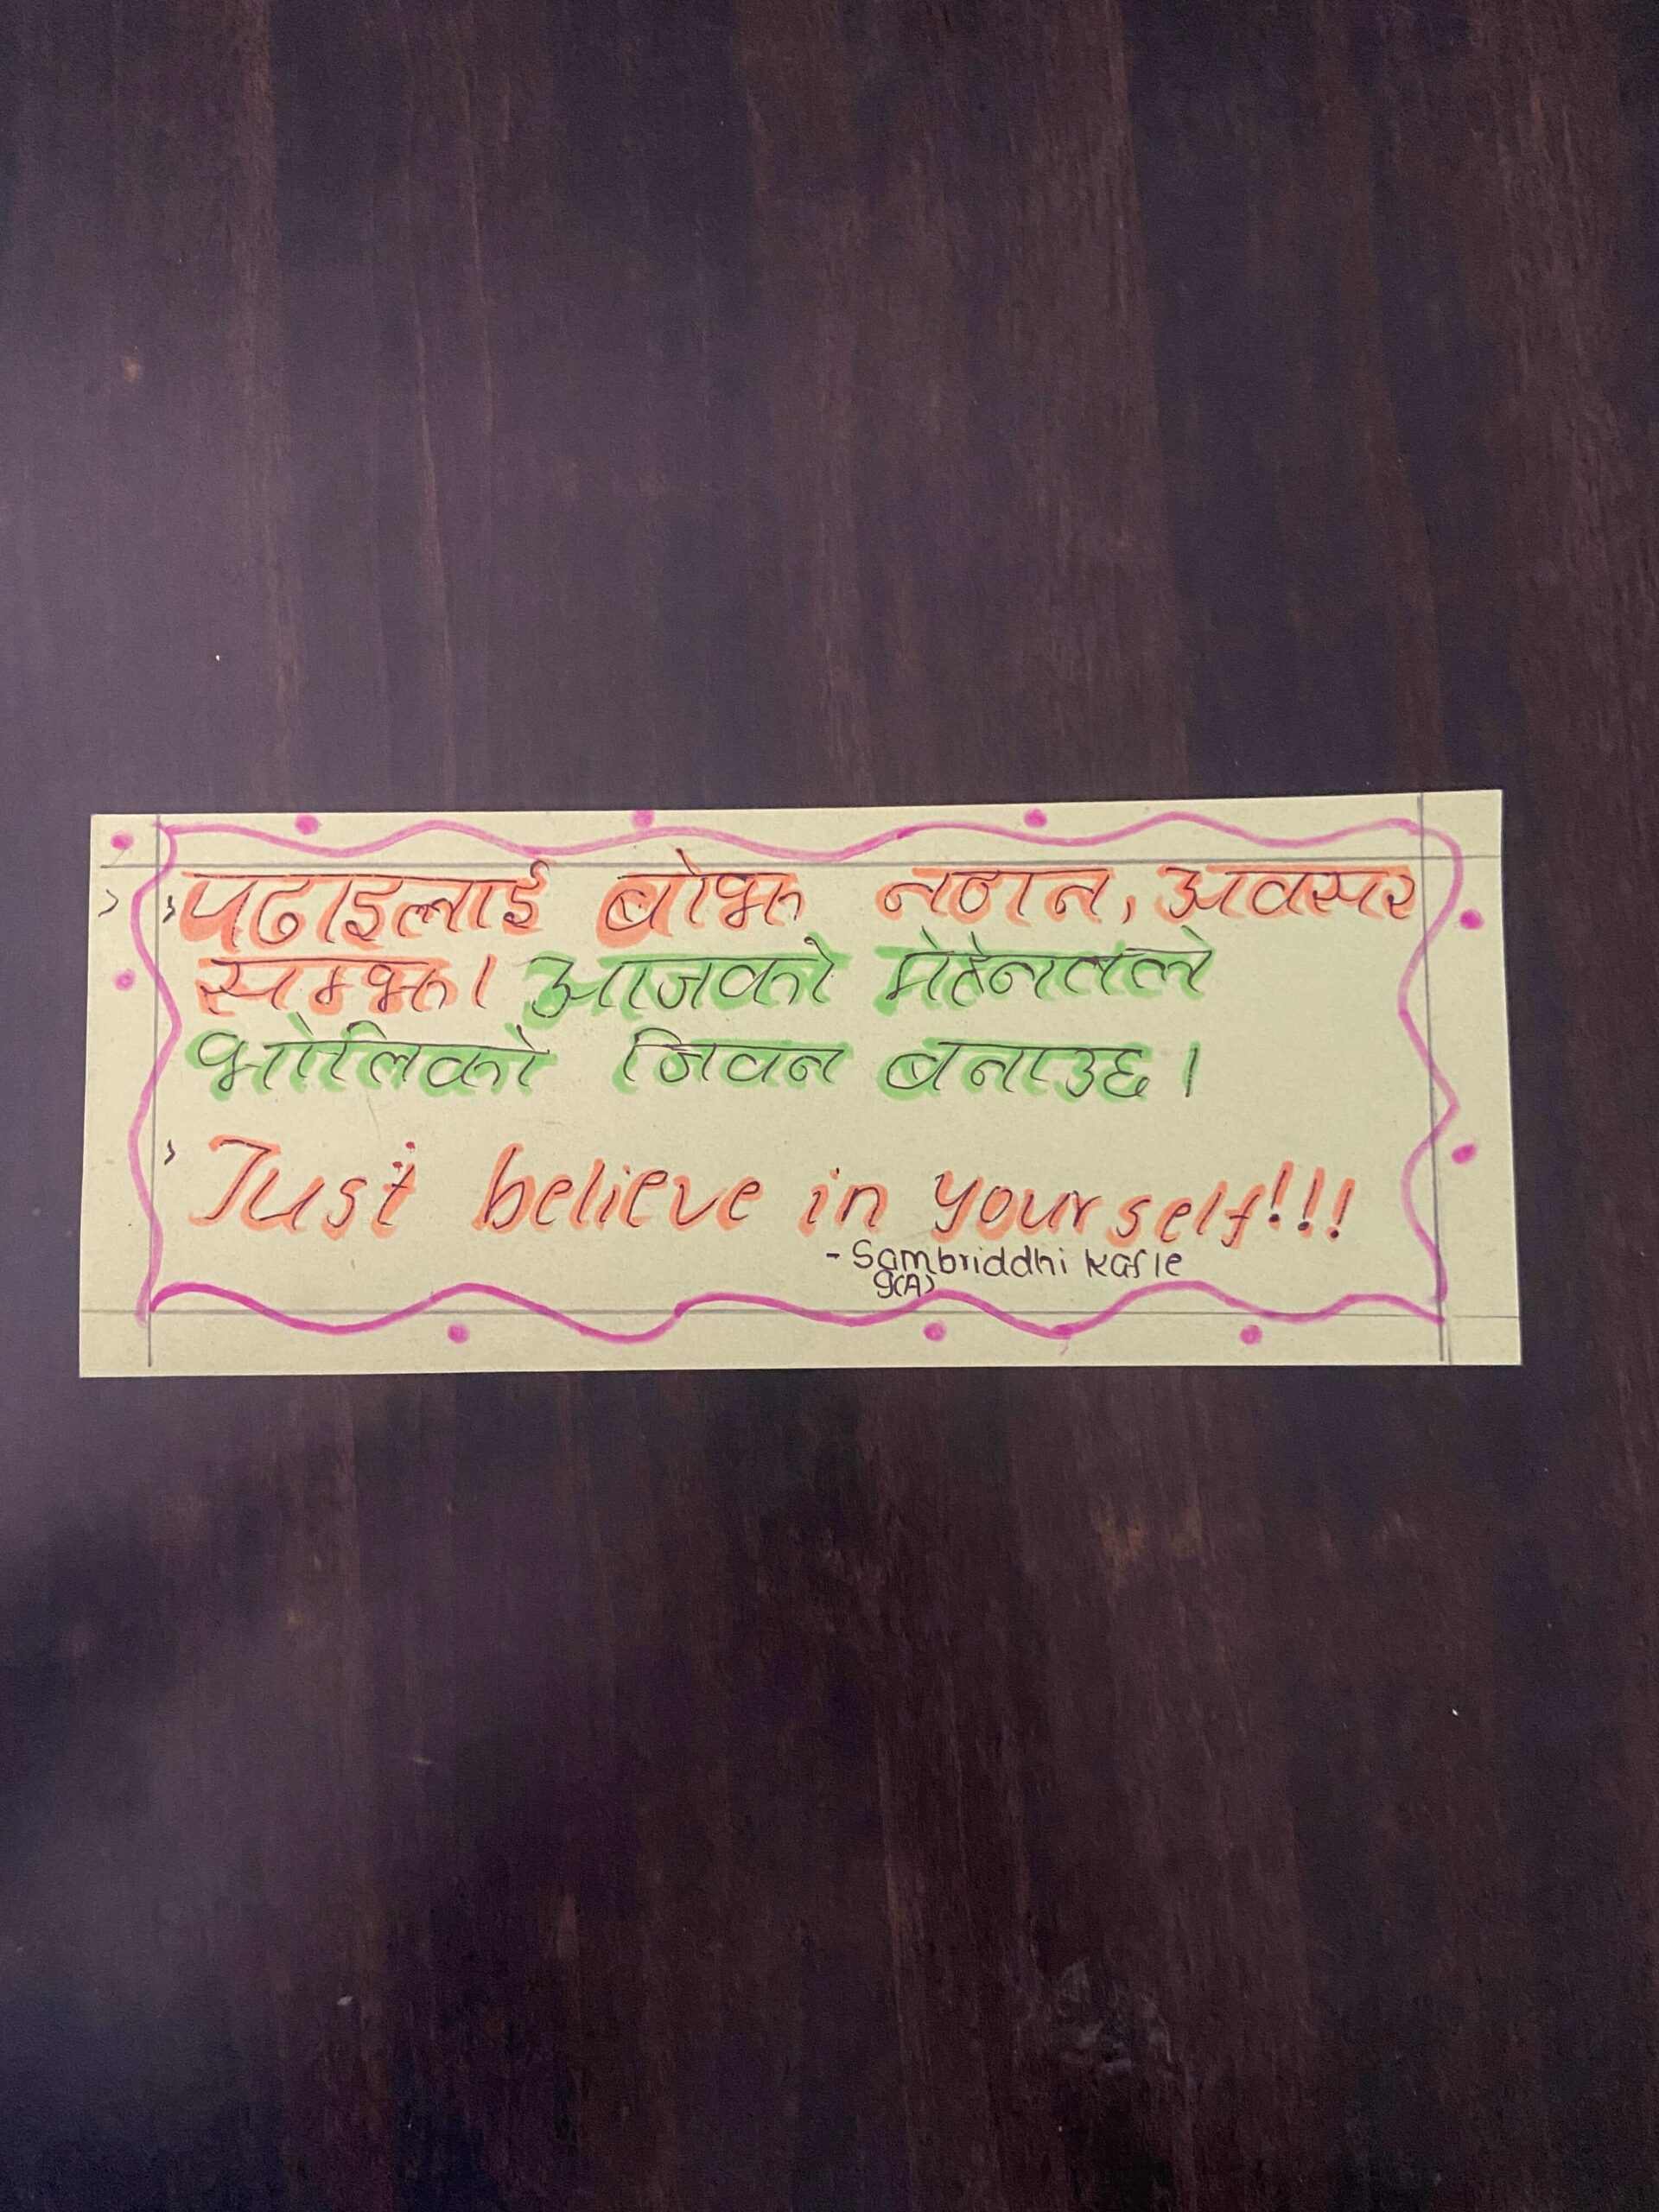 > >पढाइलाई बोझ नठान, अवसर
सम्झ। आजको मेहेनतले
भोलिको जिवन बनाउछ।
> Just believe in yourself!!!
- Sambriddhi Kafle
9(A)